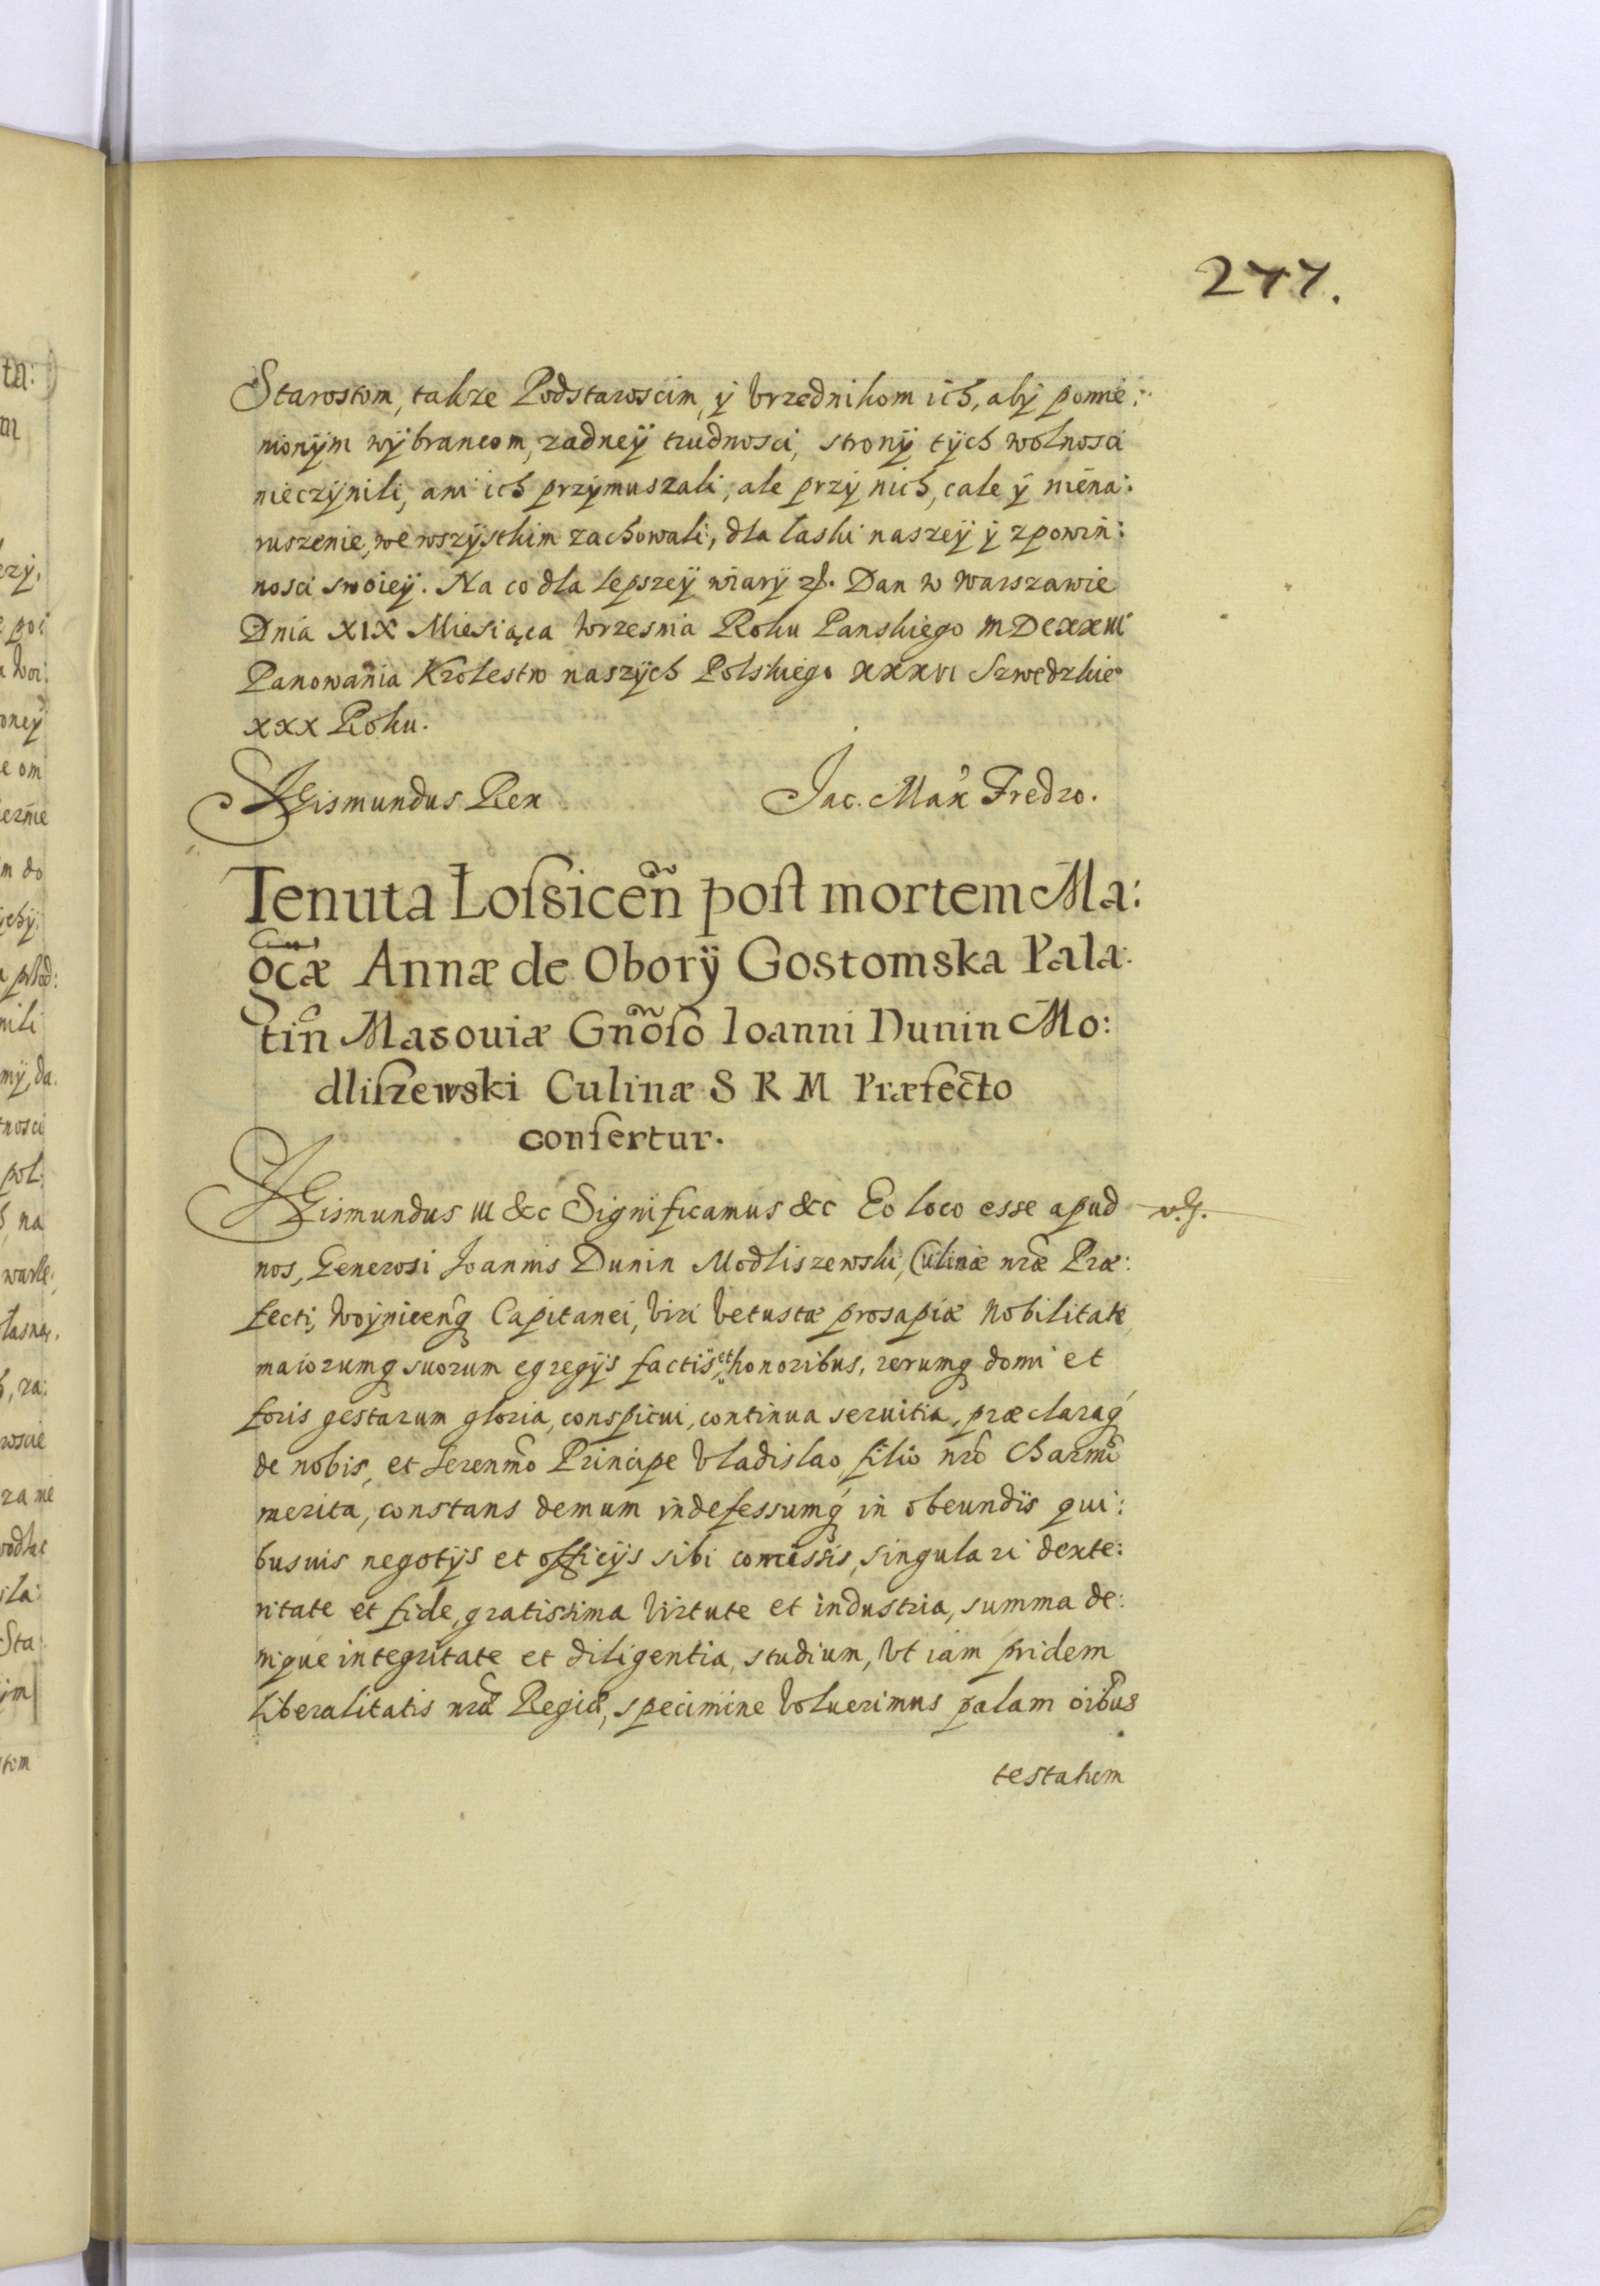 277.
Starostom, takze Podstaroscim, ÿ Vrzednikom ich, abÿ pomie:
nionÿm wÿbrancom, zadneÿ trudnosci, stronÿ tÿch wolnosci
nieczÿnili, ani ich przÿmuszali, ale przÿ nich, cale ÿ niena:
ruszenie, we wszÿstkim zachowali, dla laski naszeÿ ÿ zpowin:
nosci swoieÿ. Na co dla lepszeÿ wiarÿ Dan w Warszawie
Dnia XIX Miesiąca Wrzesnia Roku Panskiego MDCXXIII
Panowania Krolestw naszÿch Polskiego XXXVI Szwedzkie°
XXX Roku.
Sigismundus Rex Jac. Max Fredro.
Tenuta Loſsiceñ poſt mortem Ma:
gcæ Annæ de Oborÿ Gostomska Pala:
tiñ Masouiæ Gñoſo Ioanni Dunin Mo:
dliſzewski Culinæ S R M Præfecto
confertur.
Sigismundus III &c Significamus &c Eo loco esse apud
nos, Generosi Joannis Dunin Modliszewski, Culinæ nræ Præ:
fecti, Woÿnicenq Capitanei, Viri Vetustæ prosapiæ Nobilitate,
maiorumq suorum egregÿs factis, et honoribus, rerumq domi et
foris gestarum gloria, conspicui, continua seruitia, præclaraq
de nobis, et Serenmo Principe Vladislao, filio nro Charmo
merita, constans demum indefessumq in obeundis qui:
busuis negotÿs et officÿs sibi comissis, singulari dexte:
ritate et fide, gratissima Virtute et industria, summa de:
nique integritate et diligentia, studium, Vt iam pridem
Liberalitatis nræ Regiæ, specimine Voluerimus palam oibus
testatum